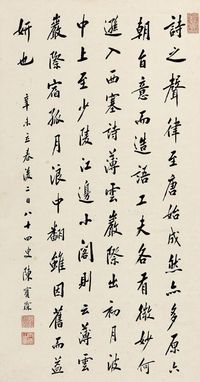 詩之聲律至唐始成然亦多原六
朝旨意而造語工夫各有微妙何
遜入西塞詩薄雲巖際出初月波
中上至少陵江邊小閣則云薄雲
巖際宿孤月浪中翻雖因舊而益
妍也
辛未立春後二日八十四叟陳寶琛